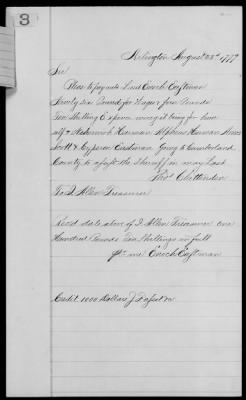 3
Arlington August 23d 1779
Sir
Please to pay unto Lieut Enoch Eastman
Ninety six Pounds for Wages & four Pounds
Ten Shilling Expence money it being for him
self & Nathaniel Harman Alpheus Harman Amos
Scott & Cyprian Eastman Going to Cumberland
County to assist the Sheriff in may Last
Thos Chittenden
To I Allen Treasurer
Recd date above of I Allen Treasurer one
Hundred Pounds Ten Shillings in full
Pr me Enoch Eastman
Credit 1000 Dollars J Fassett